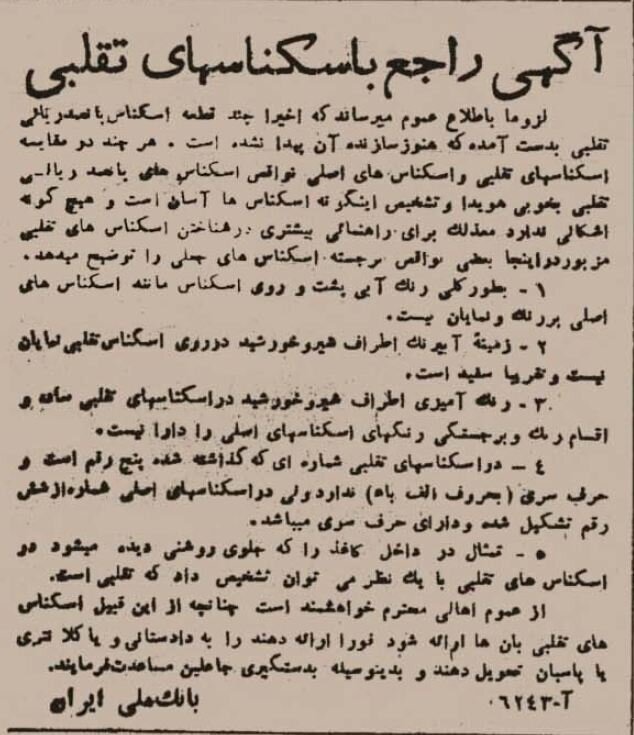 آگهی راجع باسکناسهای تقلبی
لزوما باطلاع عموم میرساند که اخیرا چند قطعه اسکناس پانصدریالی
تقلبی بدست آمده که هنوز سازنده آن پیدا نشده است . هر چند دو مقایسه
اسکناسهای تقلبی واسکناس های اصلی نواقص اسکناس های پانصد ریالی
تقلبی بخوبی هویدا وتشخیص اینگونه اسکناس ها آسان است و هیچ گونه
اشکالی ندارد معذلک برای راهنمائی بیشتری درشناختن اسکناس های تقلبی
مزبوردراینجا بعضی نواقص برجسته اسکناس های جعلی را توضیح میدهد.
۱ - بطورکلی رنك آبی پشت و روی اسکناس مانند اسکناس های
اصلی پررنك ونمایان نیست.
۲ - زمینهٔ آبیرنك اطراف شیروخورشید درروی اسکناس تقلبی نمایان
نیست وتقریبا سفید است.
۳ - رنك آمیزی اطراف شیروخورشید دراسکناسهای تقلبی ساده و
اقسام رنك وبرجستگی رنگهای اسکناسهای اصلی را دارا نیست.
٤ - دراسکناسهای تقلبی شماره ای که گذاشته شده پنج رقم است و
حرف سری (بحروف الف باء) نداردولی دراسکناسهای اصلی شماره‌ازشش
رقم تشکیل شده ودارای حرف سری میباشد.
۵ - تمثال در داخل کاغذ را که جلوی روشنی دیده میشود در
اسکناس های تقلبی با یك نظر می توان تشخیص داد که تقلبی است.
از عموم اهالی محترم خواهشمند است چنانچه از این قبیل اسکناس
های تقلبی بان ها ارائه شود فورا ارائه دهند را به دادستانی و یا کلا نتری
یا پاسبان تحویل دهند و بدینوسیله بدستگیری جاعلین مساعدت فرمایند.
آ-۰٦۲٤۳ بانك ملی ایران